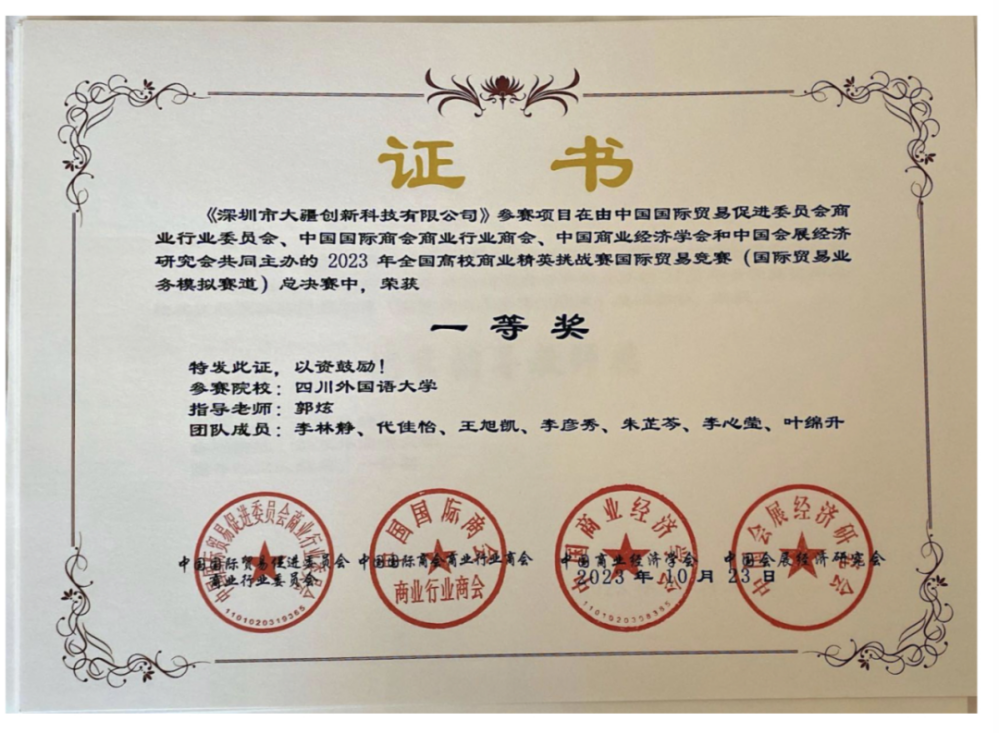 证 书
《深圳市大疆创新科技有限公司》参赛项目在由中国国际贸易促进委员会商
业行业委员会、中国国际商会商业行业商会、中国商业经济学会和中国会展经济
研究会共同主办的 2023 年全国高校商业精英挑战赛国际贸易竞赛（国际贸易业
务模拟赛道）总决赛中，荣获
一等奖
特发此证，以资鼓励！
参赛院校：四川外国语大学
指导老师：郭炫
团队成员：李林静、代佳怡、王旭凯、李彦秀、朱芷芩、李心莹、叶绵升
中国国际贸易促进委员会 中国国际商会商业行业商会 中国商业经济学会 中国会展经济研究会
商业行业委员会
2023 年 10 月 23 日
中国国际贸易促进委员会商业行业委员会
1101020319365
中国国际商会
商业行业商会
中国商业经济学会
中国会展经济研究会